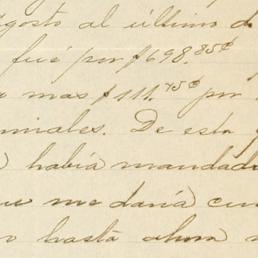 agosto al último d
fué por $698.85¢
mas $111.75¢ por
niales. De esta
había mandad
me daría cu
hasta ahora